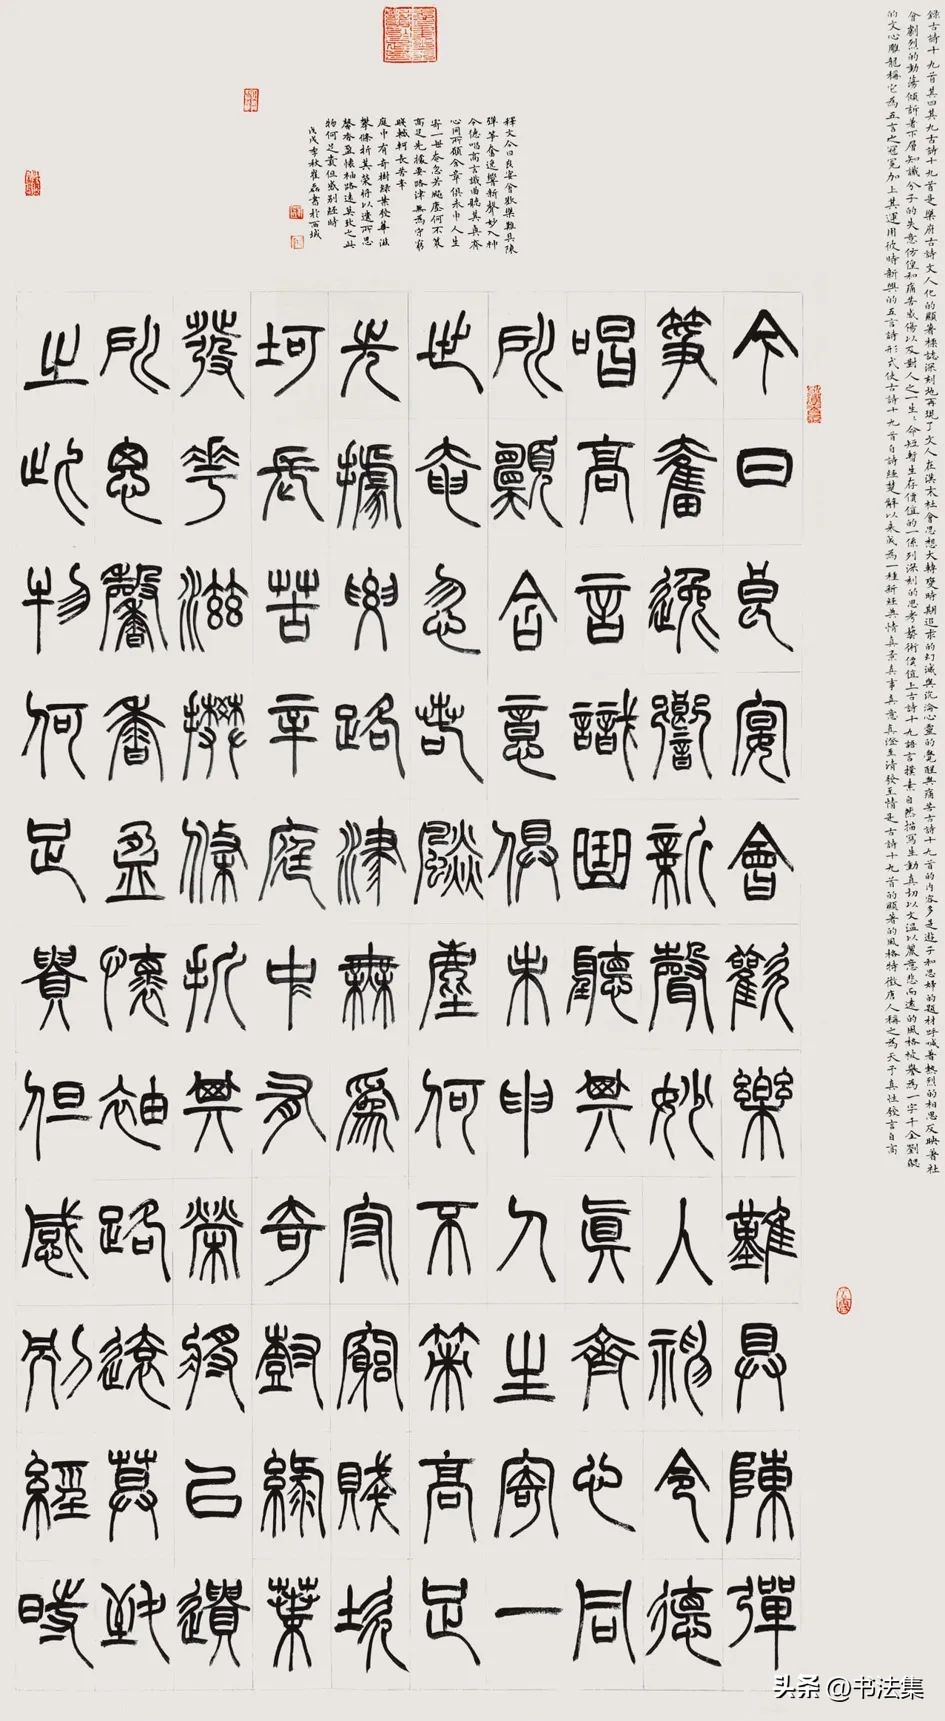 錄古詩十九首其四其九古詩十九首是樂府古詩文人化的顯著標誌深刻地再現了文人在漢末社會思想大轉變時期追求的幻滅與沉淪心靈的覺醒與痛苦古詩十九首的內容多是遊子和思婦的題材呼喊著熱烈的相思反映著社
會劇烈的動蕩傾訴著下層知識分子的失意彷徨和痛苦感傷以及對人之一生生命短暫生存價值的一係列深刻的思考藝術價值上古詩十九語言樸素自然描寫生動真切以文溫以麗意悲而遠的風格被譽為一字千金劉勰
的文心雕龍稱它為五言之冠冕加上其運用彼時新興的五言詩形式使古詩十九首自詩經楚辭以來成為一種新經典情真景真事真意真澄至清發至情是古詩十九首的顯著的風格特徵唐人稱之為天予真性發言自高
釋文今日良宴會歡樂難具陳
彈箏奮逸響新聲妙入神
令德唱高言識曲聽其真齊
心同所願含意俱未申人生
寄一世奄忽若飆塵何不策
高足先據要路津無為守窮
賤轗軻長苦辛
庭中有奇樹綠葉發華滋
攀條折其榮將以遺所思
馨香盈懷袖路遠莫致之此
物何足貴但感別經時
戊戌季秋崔磊書於西域
今日良宴會歡樂難具陳彈
箏奮逸響新聲妙入神令德
唱高言識曲聽其真齊心同
所願含意俱未申人生寄一
世奄忽若飆塵何不策高足
先據要路津無為守窮賤坎
坷長苦辛庭中有奇樹綠葉
發華滋攀條折其榮將以遺
所思馨香盈懷袖路遠莫致
之此物何足貴但感別經時
头条 @书法集